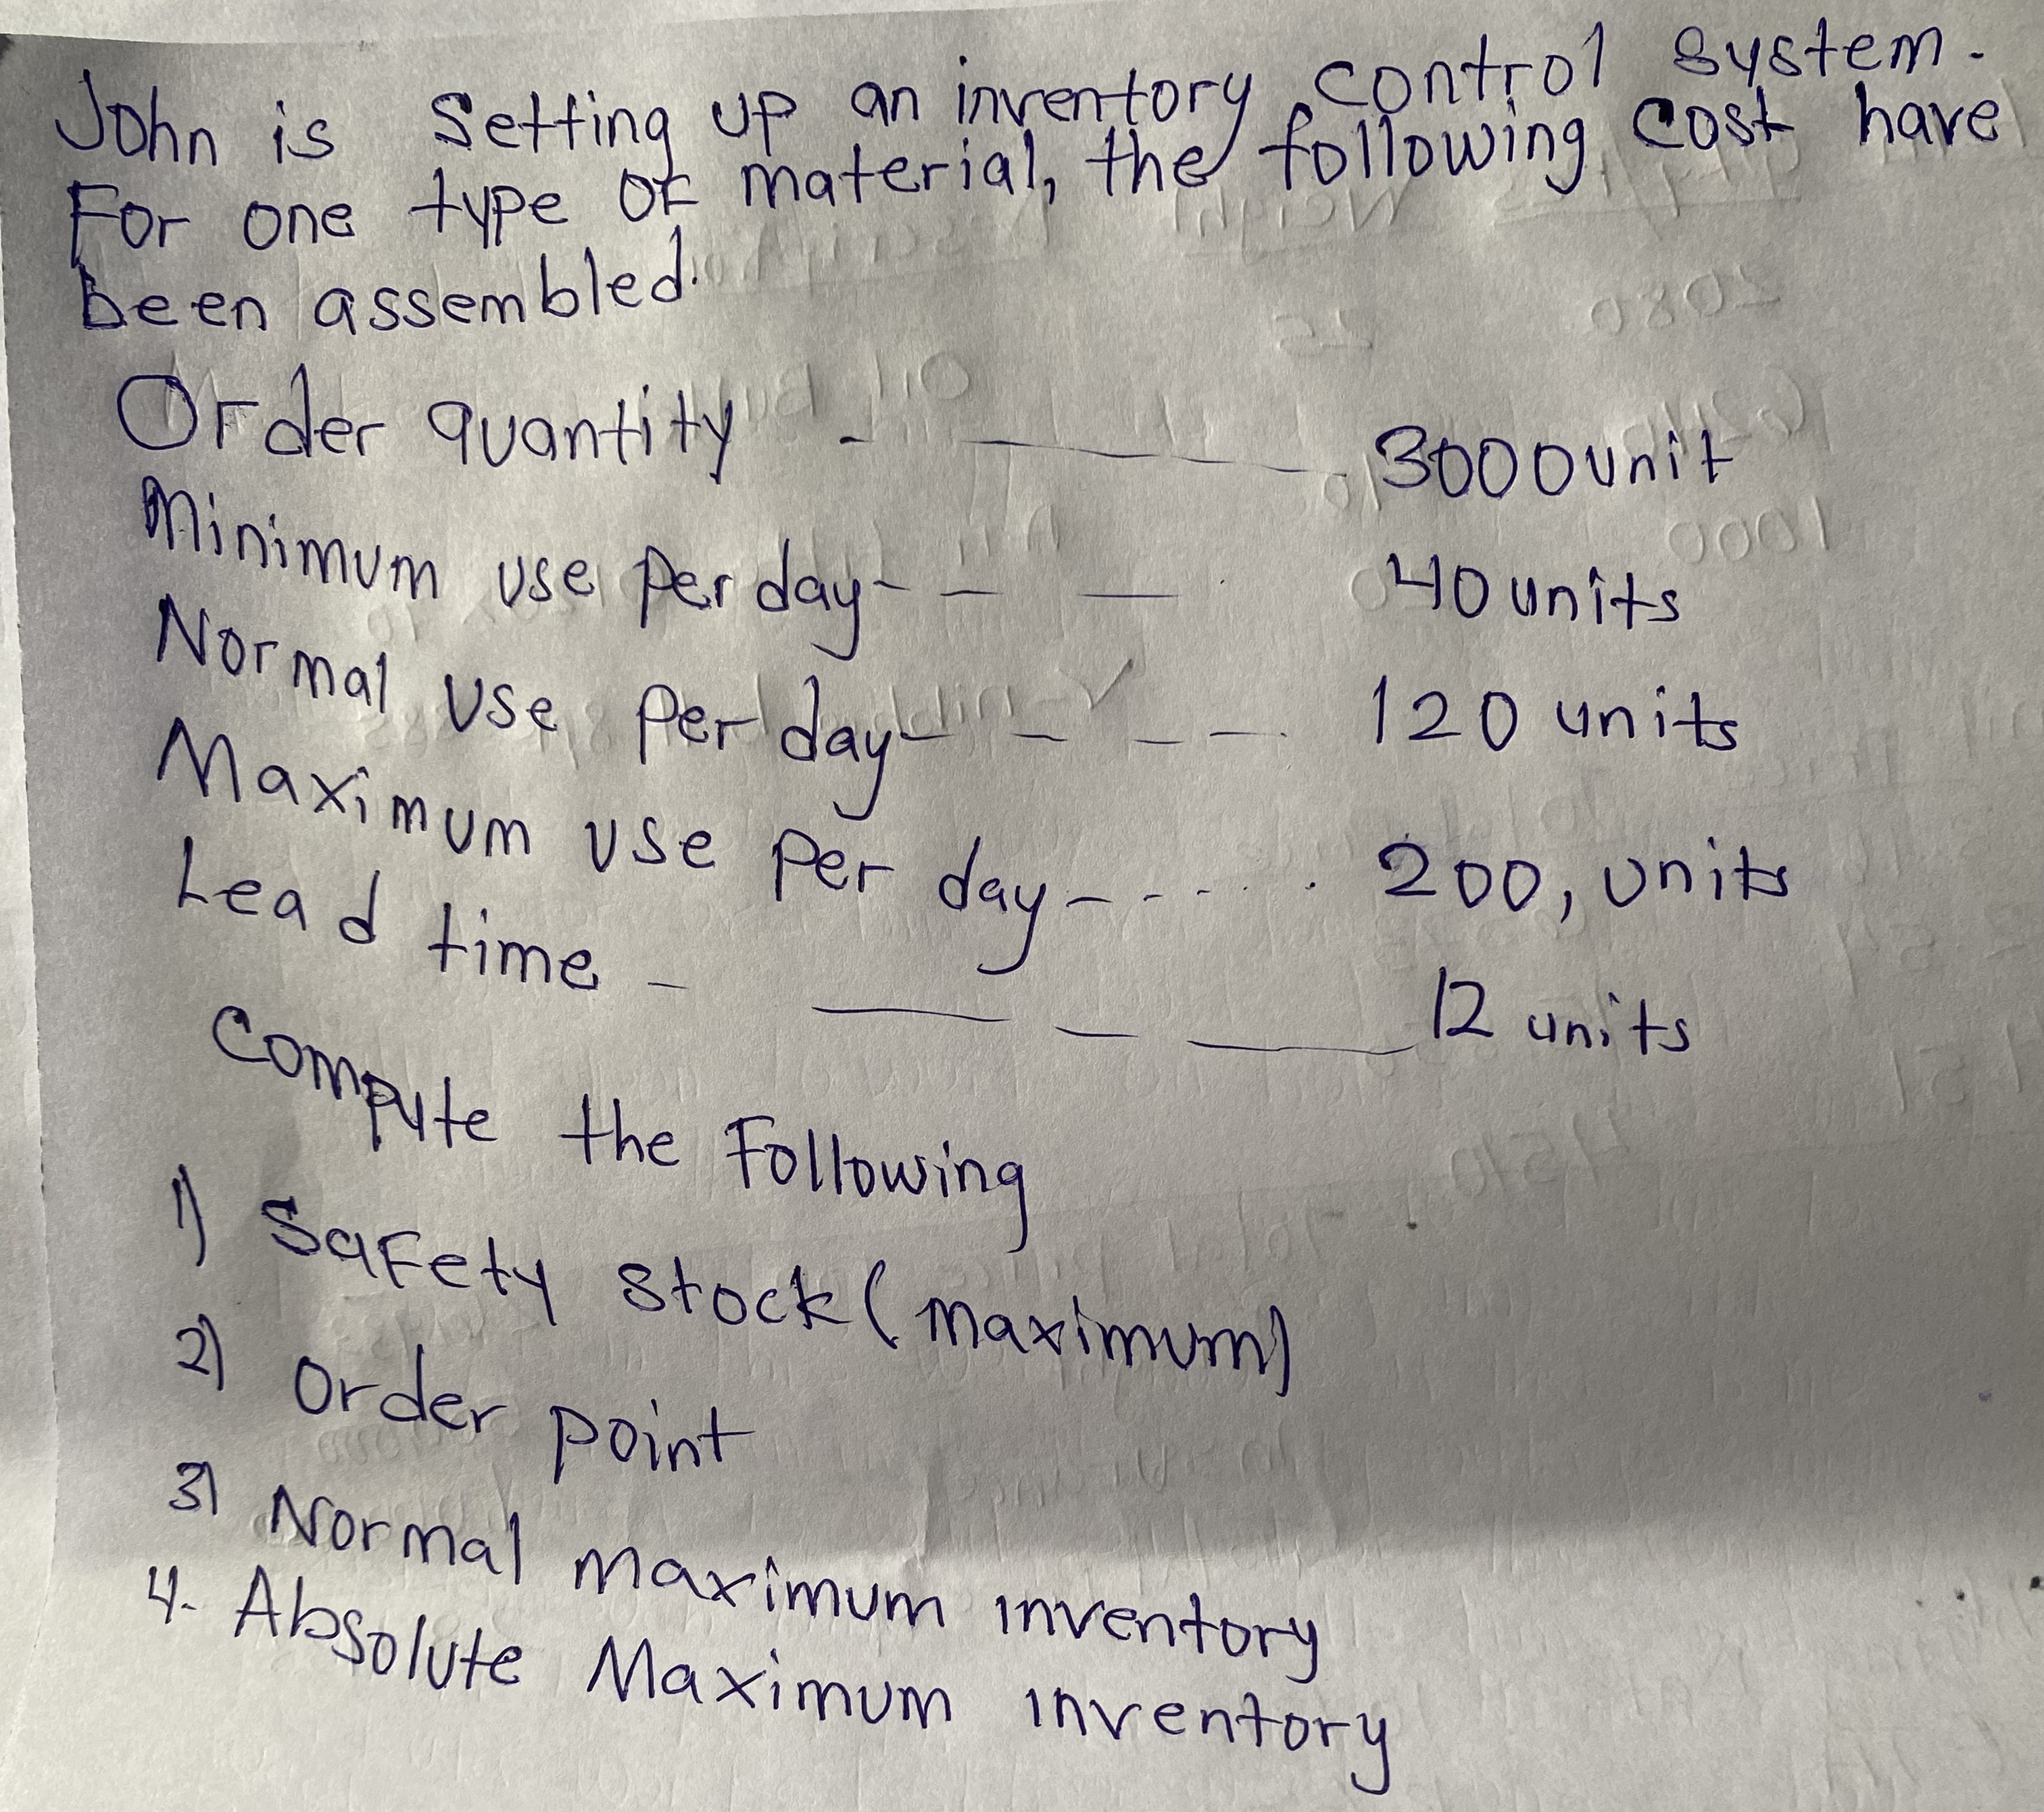 John is Setting up an inventory control system.
For one type of material, the following cost have
been assembled.
Order quantity - — — — 3000unit
Minimum use per day - - — 40 units
Normal use per day - - - - 120 units
Maximum use per day - - - - - . 200, units
Lead time - — - — 12 units
Compute the Following
1) Safety stock (maximum)
2) Order point
3) Normal maximum inventory
4. Absolute Maximum inventory